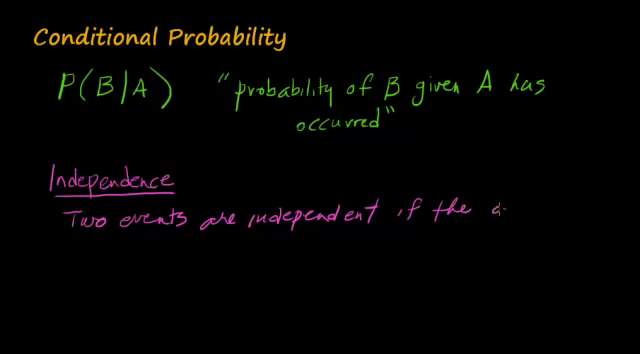 Conditional Probability
P(B/A) "probability of B given A has
occurred"
Independence
Two events are independent if the